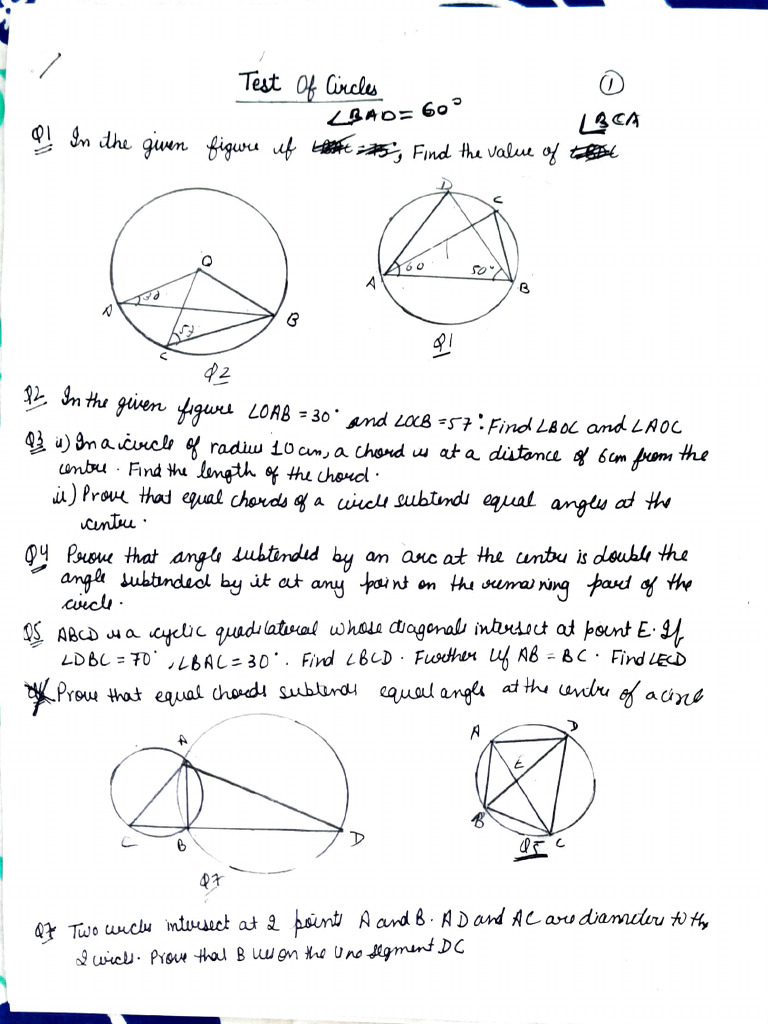 Test Of Circles
①
∠BAD = 60°
∠BCA
Q1 In the given figure if , Find the value of
D
C
60
50°
A
B
Q1
O
30
A
B
57
C
Q2
Q2 In the given figure ∠OAB = 30° and ∠OCB = 57°. Find ∠BOC and ∠AOC
Q3 i) In a circle of radius 10 cm, a chord is at a distance of 6cm from the
centre. Find the length of the chord.
ii) Prove that equal chords of a circle subtends equal angles at the
centre.
Q4 Prove that angle subtended by an arc at the centre is double the
angle subtended by it at any point on the remaining part of the
circle.
Q5 ABCD is a cyclic quadilateral whose diagonals intersect at point E. If
∠DBC = 70°, ∠BAC = 30°. Find ∠BCD. Further if AB = BC. Find ∠ECD
Prove that equal chords subtends equal angle at the centre of a circle
A
C
B
D
Q7
A
D
E
B
C
Q5
Q7 Two circles intersect at 2 points A and B. AD and AC are diameters to the
2 circles. Prove that B lies on the line segment DC